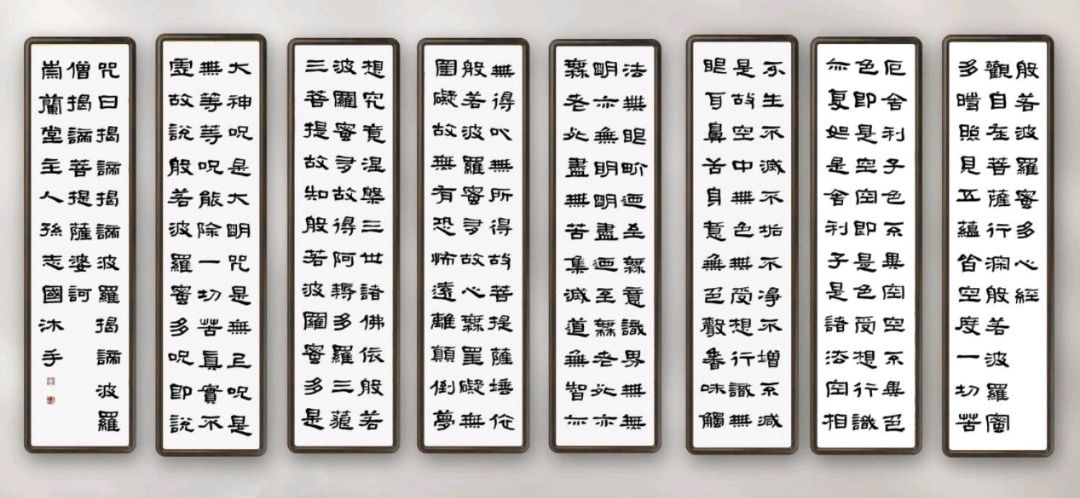 般若波羅蜜多心經
觀自在菩薩行深般若波羅蜜
多時照見五蘊皆空度一切苦
厄舍利子色不異空空不異色
色即是空空即是色受想行識
亦复如是舍利子是諸法空相
不生不滅不垢不淨不增不減
是故空中無色無受想行識無
眼耳鼻舌身意無色聲香味觸
法無眼界迺至無意識界無無
明亦無明明盡迺至無老死亦
無老死盡無苦集滅道無智亦
無得以無所得故菩提薩埵依
般若波羅蜜多故心無罣礙無
罣礙故無有恐怖遠離顛倒夢
想究竟涅槃三世諸佛依般若
波羅蜜多故得阿耨多羅三藐
三菩提故知般若波羅蜜多是
大神咒是大明咒是無上咒是
無等等咒能除一切苦真實不
虛故說般若波羅蜜多咒即說
咒曰揭諦揭諦波羅揭諦波羅
僧揭諦菩提薩婆訶
蘭堂主人孫志國沐手